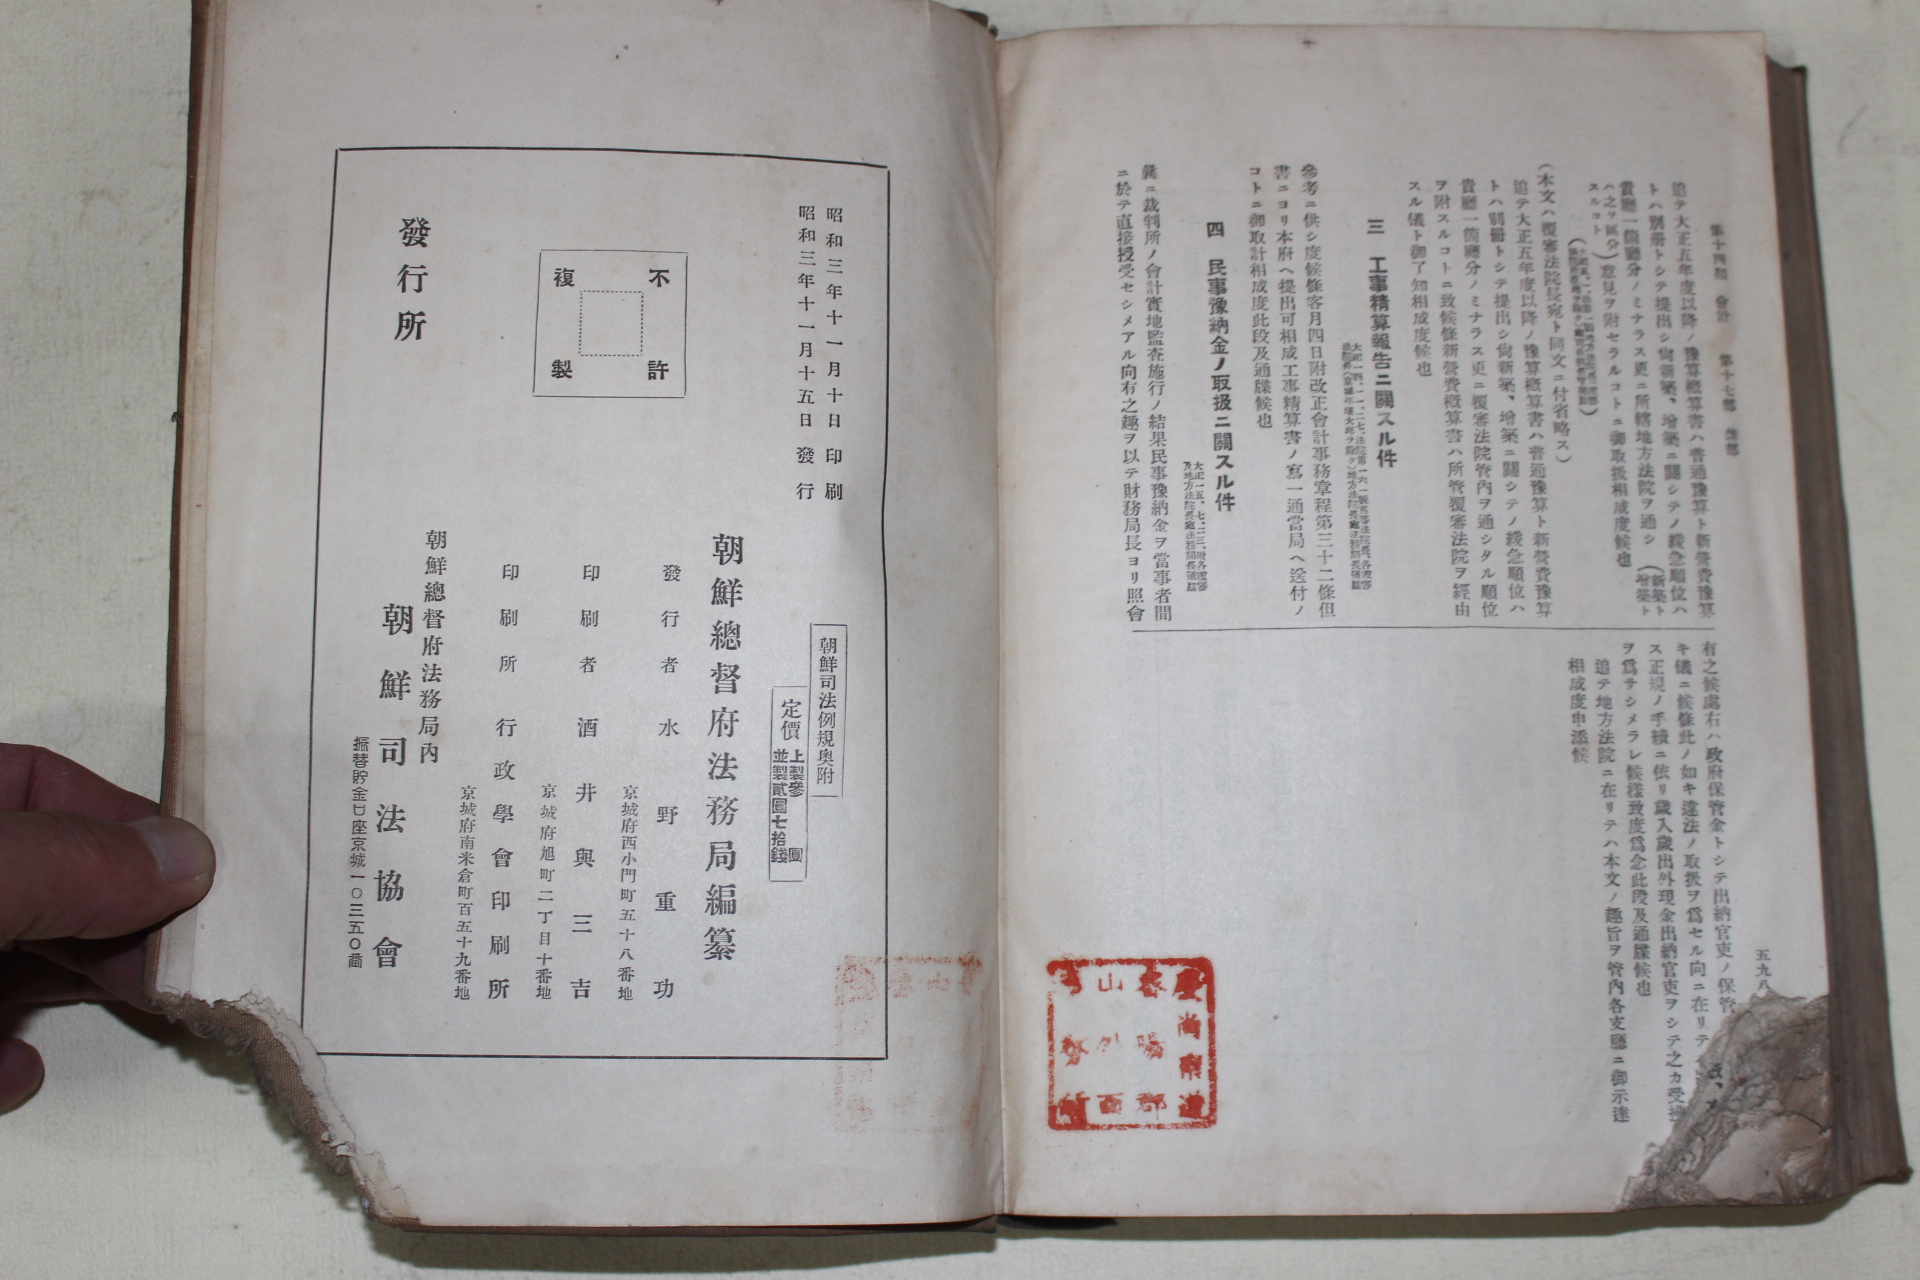 第十四類 會計 第十七部 雜部
追テ大正五年度以降ノ豫算概算書ハ普通豫算ト新營費豫算
トハ別册トシテ提出シ尙新築、增築ニ關シテノ緩急順位ハ
貴廳一箇廳分ノミナラス更ニ所轄地方法院ヲ通シ(新築ト增築ト
ハ之ヲ區分)意見ヲ附セラルコトニ御取扱相成度候也
スルコト
(本文ハ覆審法院長宛ト同文ニ付省略ス)
追テ大正五年度以降ノ豫算概算書ハ普通豫算ト新營費豫算
トハ別册トシテ提出シ尙新築、增築ニ關シテノ緩急順位ハ
貴廳一箇廳分ノミナラス更ニ覆審法院管內ヲ通シタル順位
ヲ附スルコトニ致候條新營費概算書ハ所管覆審法院ヲ經由
スル儀ト御了知相成度候也
三 工事精算報告ニ關スル件
參考ニ供シ度候條客月四日附改正會計事務章程第三十二條但
書ニヨリ本府ヘ提出可相成工事精算書ノ寫一通當局ヘ送付ノ
コトニ御取計相成度此段及通牒候也
四 民事豫納金ノ取扱ニ關スル件
大正一五、七、二三、附各覆審
及地方法院長處法務局長通牒
曩ニ裁判所ノ會計實地監査施行ノ結果民事豫納金ヲ當事者間
ニ於テ直接授受セシメアル向有之趣ヲ以テ財務局長ヨリ照會
有之候處右ハ政府保管金トシテ出納官吏ノ保管
キ儀ニ候條此ノ如キ違法ノ取扱ヲ爲セル向ニ在リテ
ス正規ノ手續ニ依リ歲入歲出外現金出納官吏ヲシテ之カ受
ヲ爲サシメラレ候樣致度爲念此段及通牒候也
追テ地方法院ニ在リテハ本文ノ趣旨ヲ管內各支廳ニ御示達
相成度申添候
五九八
昭和三年十一月十日印刷
昭和三年十一月十五日發行
不許複製
朝鮮司法例規奧附
定價 上製參圓
並製貳圓七拾錢
朝鮮總督府法務局編纂
發行者 水野重功
京城府西小門町五十八番地
印刷者 酒井與三吉
京城府旭町二丁目十番地
印刷所 行政學會印刷所
京城府南米倉町百五十九番地
發行所
朝鮮總督府法務局內
朝鮮司法協會
振替貯金口座京城一〇三五〇番